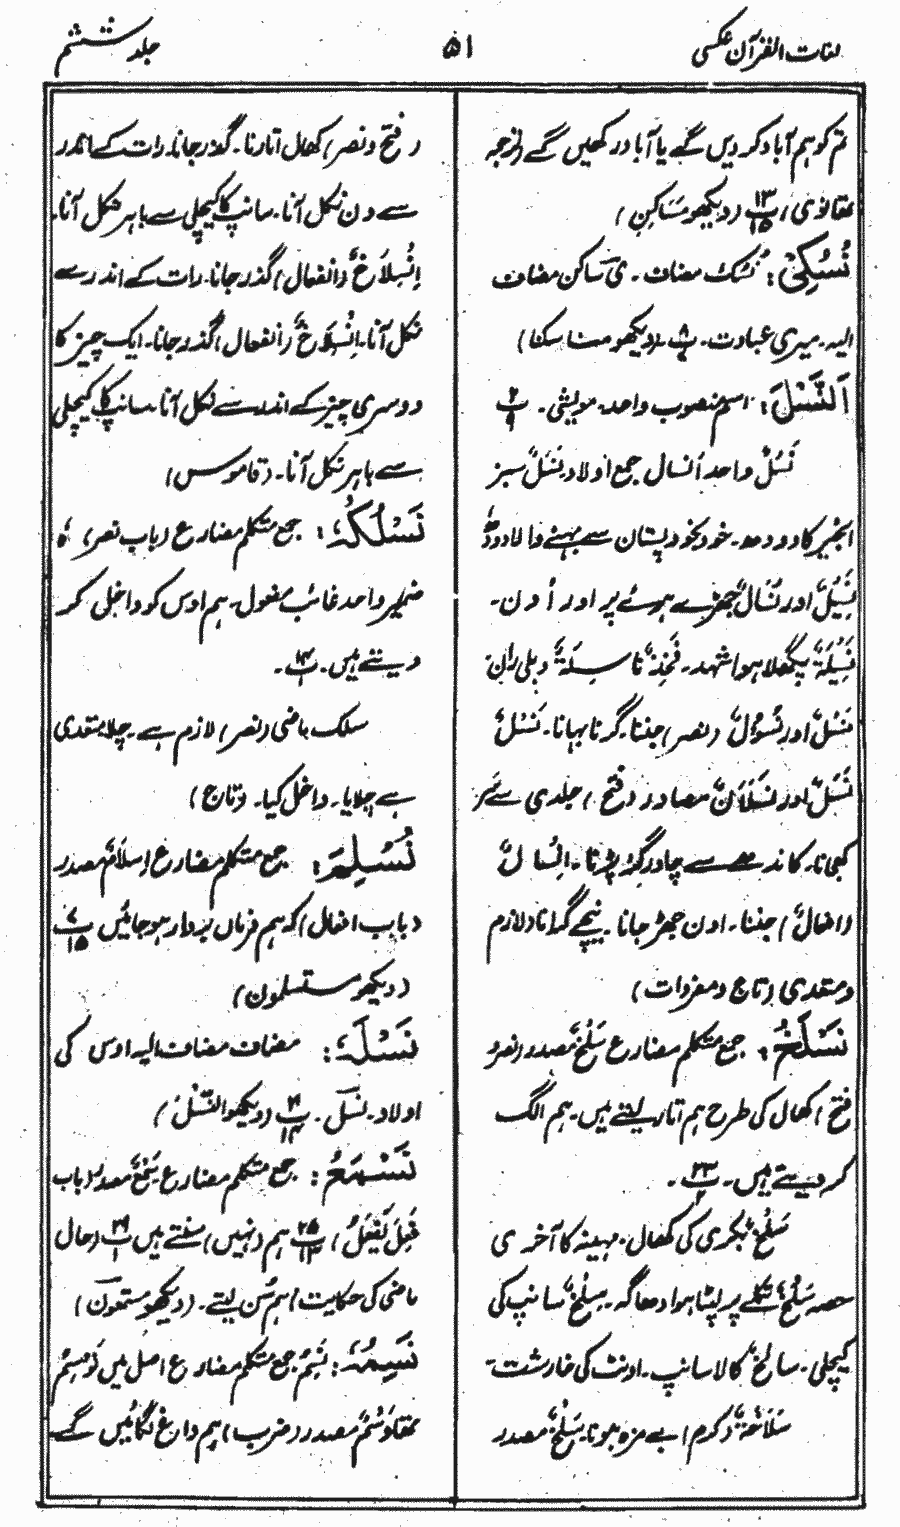 لغات القرآن عکسی
۵۱
جلد ششم
تم کو ہم آباد کر دیں گے یا آباد رکھیں گے (ترجمہ
تھانوی) ۱۳ پ ۱۵ (دیکھو مَسَاکِن)
نُسُکِیْ: نُسُک مضاف۔ ی ساکن مضاف
الیہ۔ میری عبادت۔ پ ۸ (دیکھو مناسکنا)
اَلنَّسْلَ: اسم منصوب واحد۔ مویشی۔ پ ۲ ۹
نَسْلٌ واحد اَنسال جمع اولاد نَسَلٌ سبز
انجیر کا دودھ۔ خود بخود پستان سے بہنے والا دودھ
نَسِیْلٌ اور نُسَالٌ جھڑے ہوئے پر اور اُون۔
نَسِیْلَۃٌ پگھلا ہوا شہد۔ فَخِذٌ نَاسِلَۃٌ دبلی ران۔
نَسْلٌ اور نُسُوْلٌ (نصر) جننا۔ گرنا بہانا۔ نَسْلٌ
نَسَلٌ اور نَسَلَانٌ مصادر (فتح) جلدی سے سر
کھجانا۔ کاندھے سے چادر گر پڑنا۔ اِنْسَالٌ
(افعال) جننا۔ اون جھڑ جانا۔ نیچے گرانا (لازم
و متعدی) (تاج و مفردات)
نَسْلَخُ: جمع متکلم مضارع سَلْخٌ مصدر (نصر و
فتح) کھال کی طرح ہم اتار لیتے ہیں۔ ہم الگ
کر دیتے ہیں۔ ۲۳ پ ۲۔
سَلْخٌ بکری کی کھال۔ مہینہ کا آخری
حصہ سَلْخٌ تکلے پر لپٹا ہوا دھاگہ۔ سِلْخٌ سانپ کی
کیچلی۔ سالخٌ کالا سانپ۔ اونٹ کی خارشت۔
سَلَاخَۃٌ (کرم) بے مزہ ہونا۔ سَلْخٌ مصدر
(فتح و نصر) کھال اتارنا۔ گذر جانا۔ رات کے اندر
سے دن نکل آنا۔ سانپ کا کیچلی سے باہر نکل آنا۔
اِنْسِلَاخٌ (انفعال) گذر جانا۔ رات کے اندر سے
نکل آنا۔ اِنْسِلَاخٌ (انفعال) گذر جانا۔ ایک چیز کا
دوسری چیز کے اندر سے نکل آنا۔ سانپ کا کیچلی
سے باہر نکل آنا۔ (قاموس)
نَسْلُکُہٗ: جمع متکلم مضارع (باب نصر) ہٗ
ضمیر واحد غائب مفعول۔ ہم اوس کو داخل کر
دیتے ہیں۔ ۱۴ پ ۱۔
سلک ماضی (نصر) لازم ہے۔ چلا متعدی
ہے چلایا۔ داخل کیا۔ (تاج)
نُسْلِمَ: جمع متکلم مضارع اِسلامٌ مصدر
(باب افعال) کہ ہم فرماں بردار ہوجائیں پ ۷ ۱۵
(دیکھو مستسلمون)
نَسْلَہٗ: مضاف مضاف الیہ اوس کی
اولاد۔ نسل۔ ۲۱ پ ۱۴ (دیکھو النّسْلَ)
نَسْمَعُ: جمع متکلم مضارع سَمْعٌ مصدر (باب
فَعِلَ یَفْعَلُ) ۲۵ پ ۱۳ ہم (نہیں) سنتے ہیں ۲۹ پ ۱ (حال
ماضی کی حکایت) ہم سُن لیتے۔ (دیکھو مستمعون)
نَسِمُہٗ: نَسِمُ جمع متکلم مضارع اصل میں نَوْسِمُ
تھا وَسْمٌ مصدر (ضرب) ہم داغ لگائیں گے